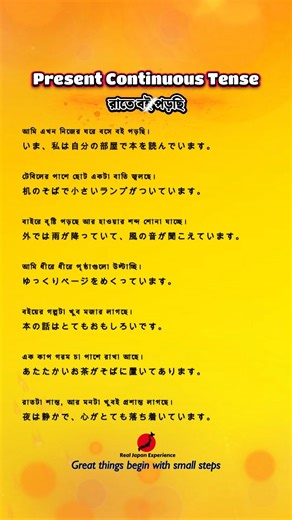 Present Continuous Tense
রাতে বই পড়ছি
আমি এখন নিজের ঘরে বসে বই পড়ছি।
いま、私は自分の部屋で本を読んでいます。
টেবিলের পাশে ছোট একটা বাতি জ্বলছে।
机のそばで小さいランプがついています。
বাইরে বৃষ্টি পড়ছে আর হাওয়ার শব্দ শোনা যাচ্ছে।
外では雨が降っていて、風の音が聞こえています。
আমি ধীরে ধীরে পৃষ্ঠাগুলো উল্টাচ্ছি।
ゆっくりページをめくっています。
বইয়ের গল্পটা খুব মজার লাগছে।
本の話はとてもおもしろいです。
এক কাপ গরম চা পাশে রাখা আছে।
あたたかいお茶がそばに置いてあります。
রাতটা শান্ত, আর মনটা খুবই প্রশান্ত লাগছে।
夜は静かで、心がとても落ち着いています。
Real Japan Experience
Great things begin with small steps